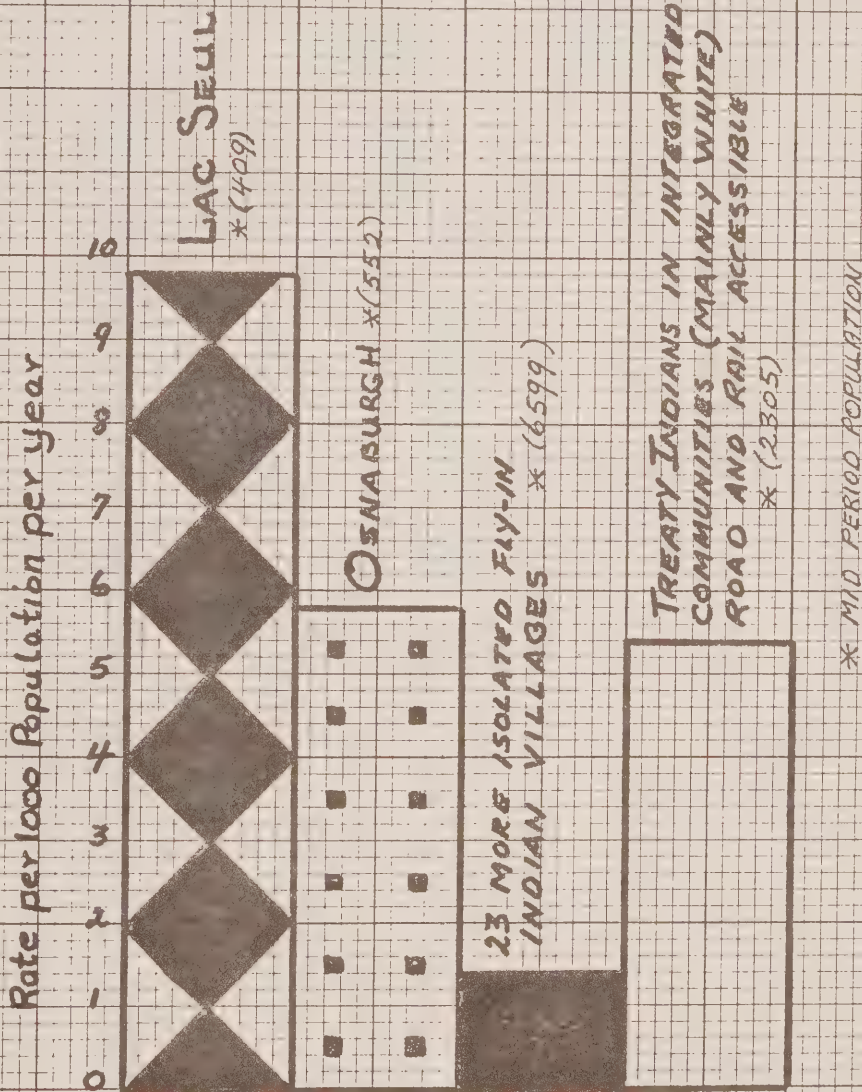 Rate per 1000 Population per year
0 1 2 3 4 5 6 7 8 9 10
LAC SEUL
*(409)
OSNABURGH *(552)
23 MORE ISOLATED FLY-IN
INDIAN VILLAGES *(6599)
TREATY INDIANS IN INTEGRATED
COMMUNITIES (MAINLY WHITE)
ROAD AND RAIL ACCESSIBLE
*(2305)
* MID PERIOD POPULATION